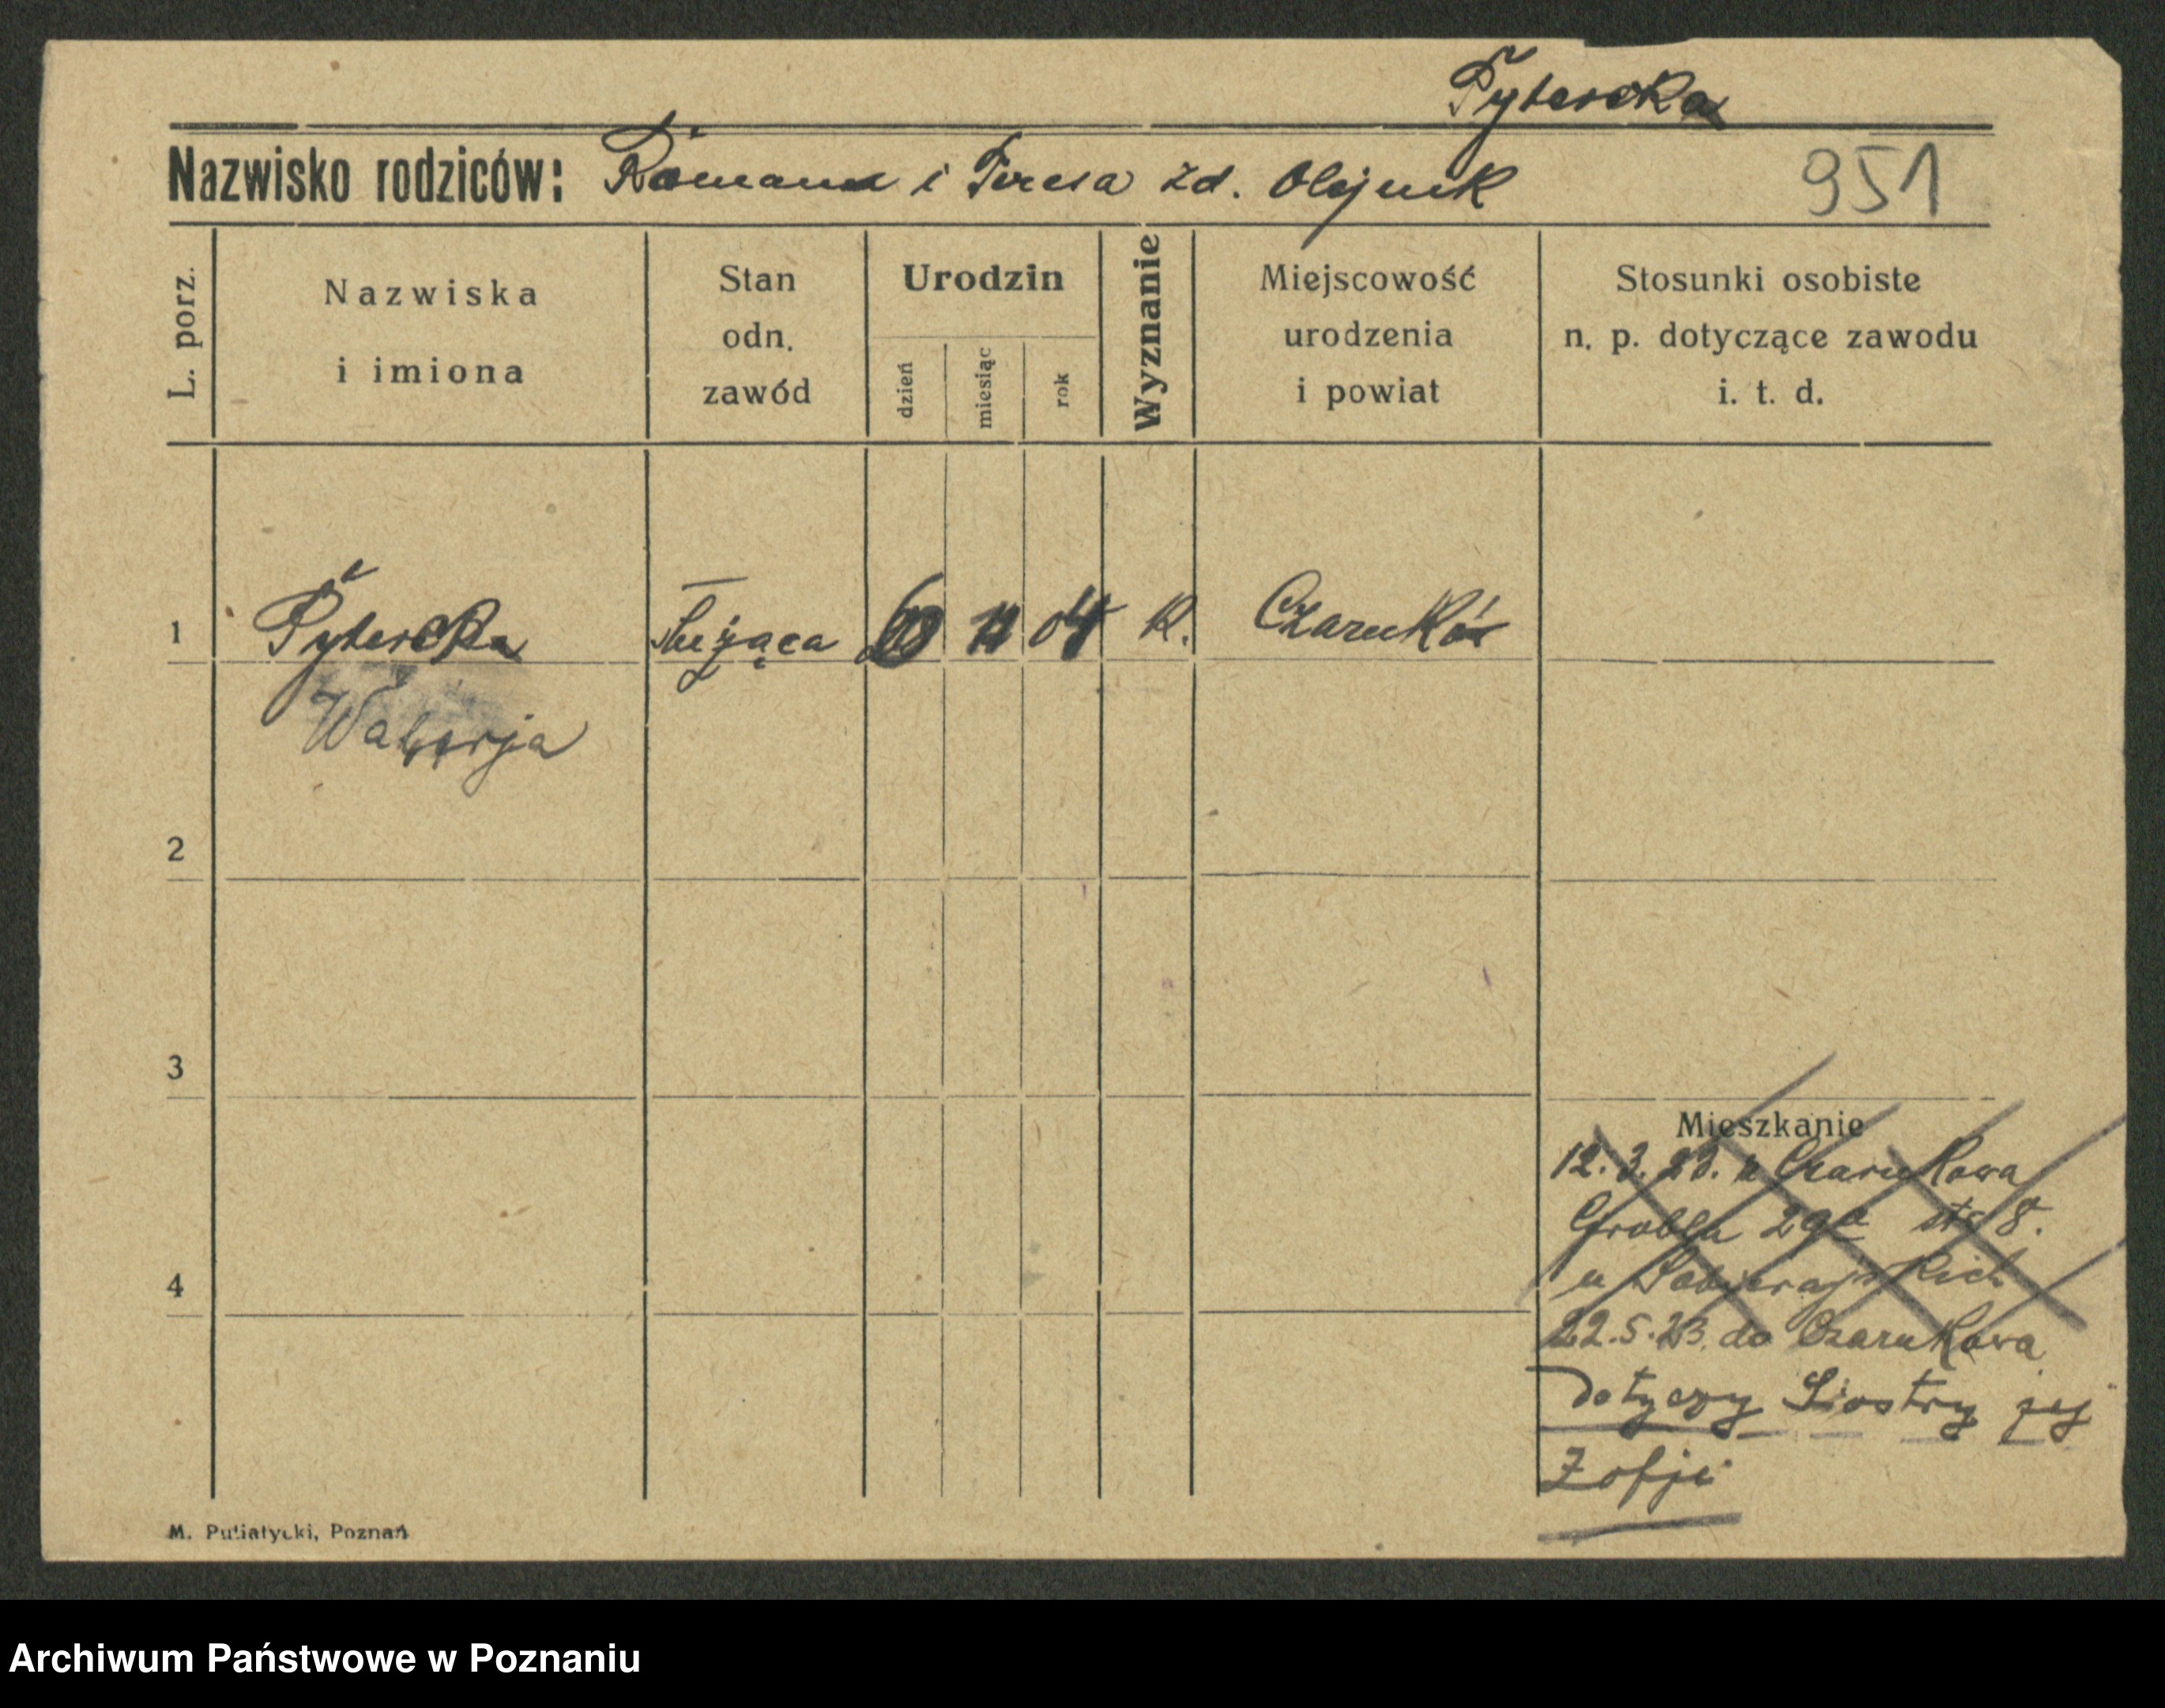 Pyterska
Nazwisko rodziców: Roman i Teresa zd. Olejnik 951
L. porz.
Nazwiska
i imiona
Stan
odn.
zawód
Urodzin
dzień
miesiąc
rok
Wyznanie
Miejscowość
urodzenia
i powiat
Stosunki osobiste
n. p. dotyczące zawodu
i. t. d.
1 służąca 04 K. Czarnków
Walerja
2
3
4
Mieszkanie
12.3.23. z Czarnkowa
Grobla 29a 8.
u
22.5.23. do Czarnkowa
Dotyczy Siostry jej
Zofji
M. Putiatycki, Poznań
Archiwum Państwowe w Poznaniu